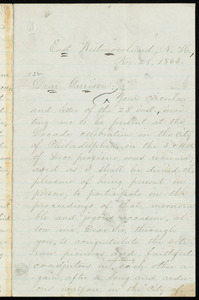 East Westmoreland, N. H.,
Nov. 30, 1863.
Dear Garrison,
Your circular
and letter of the 23 inst. inviting
me to be present at the
Decade celebration in the City
of Philadelphia on the 3d & 4th
of Dec. proximo, was received,
and as I shall be denied the
pleasure of being present in
person, to participate in the
proceedings of that memorable
and joyous occasion, allow
me, Dear Sir, through
you, to congratulate the veteran
pioneers and faithful
coadjutors in each other's
and under
in the City of